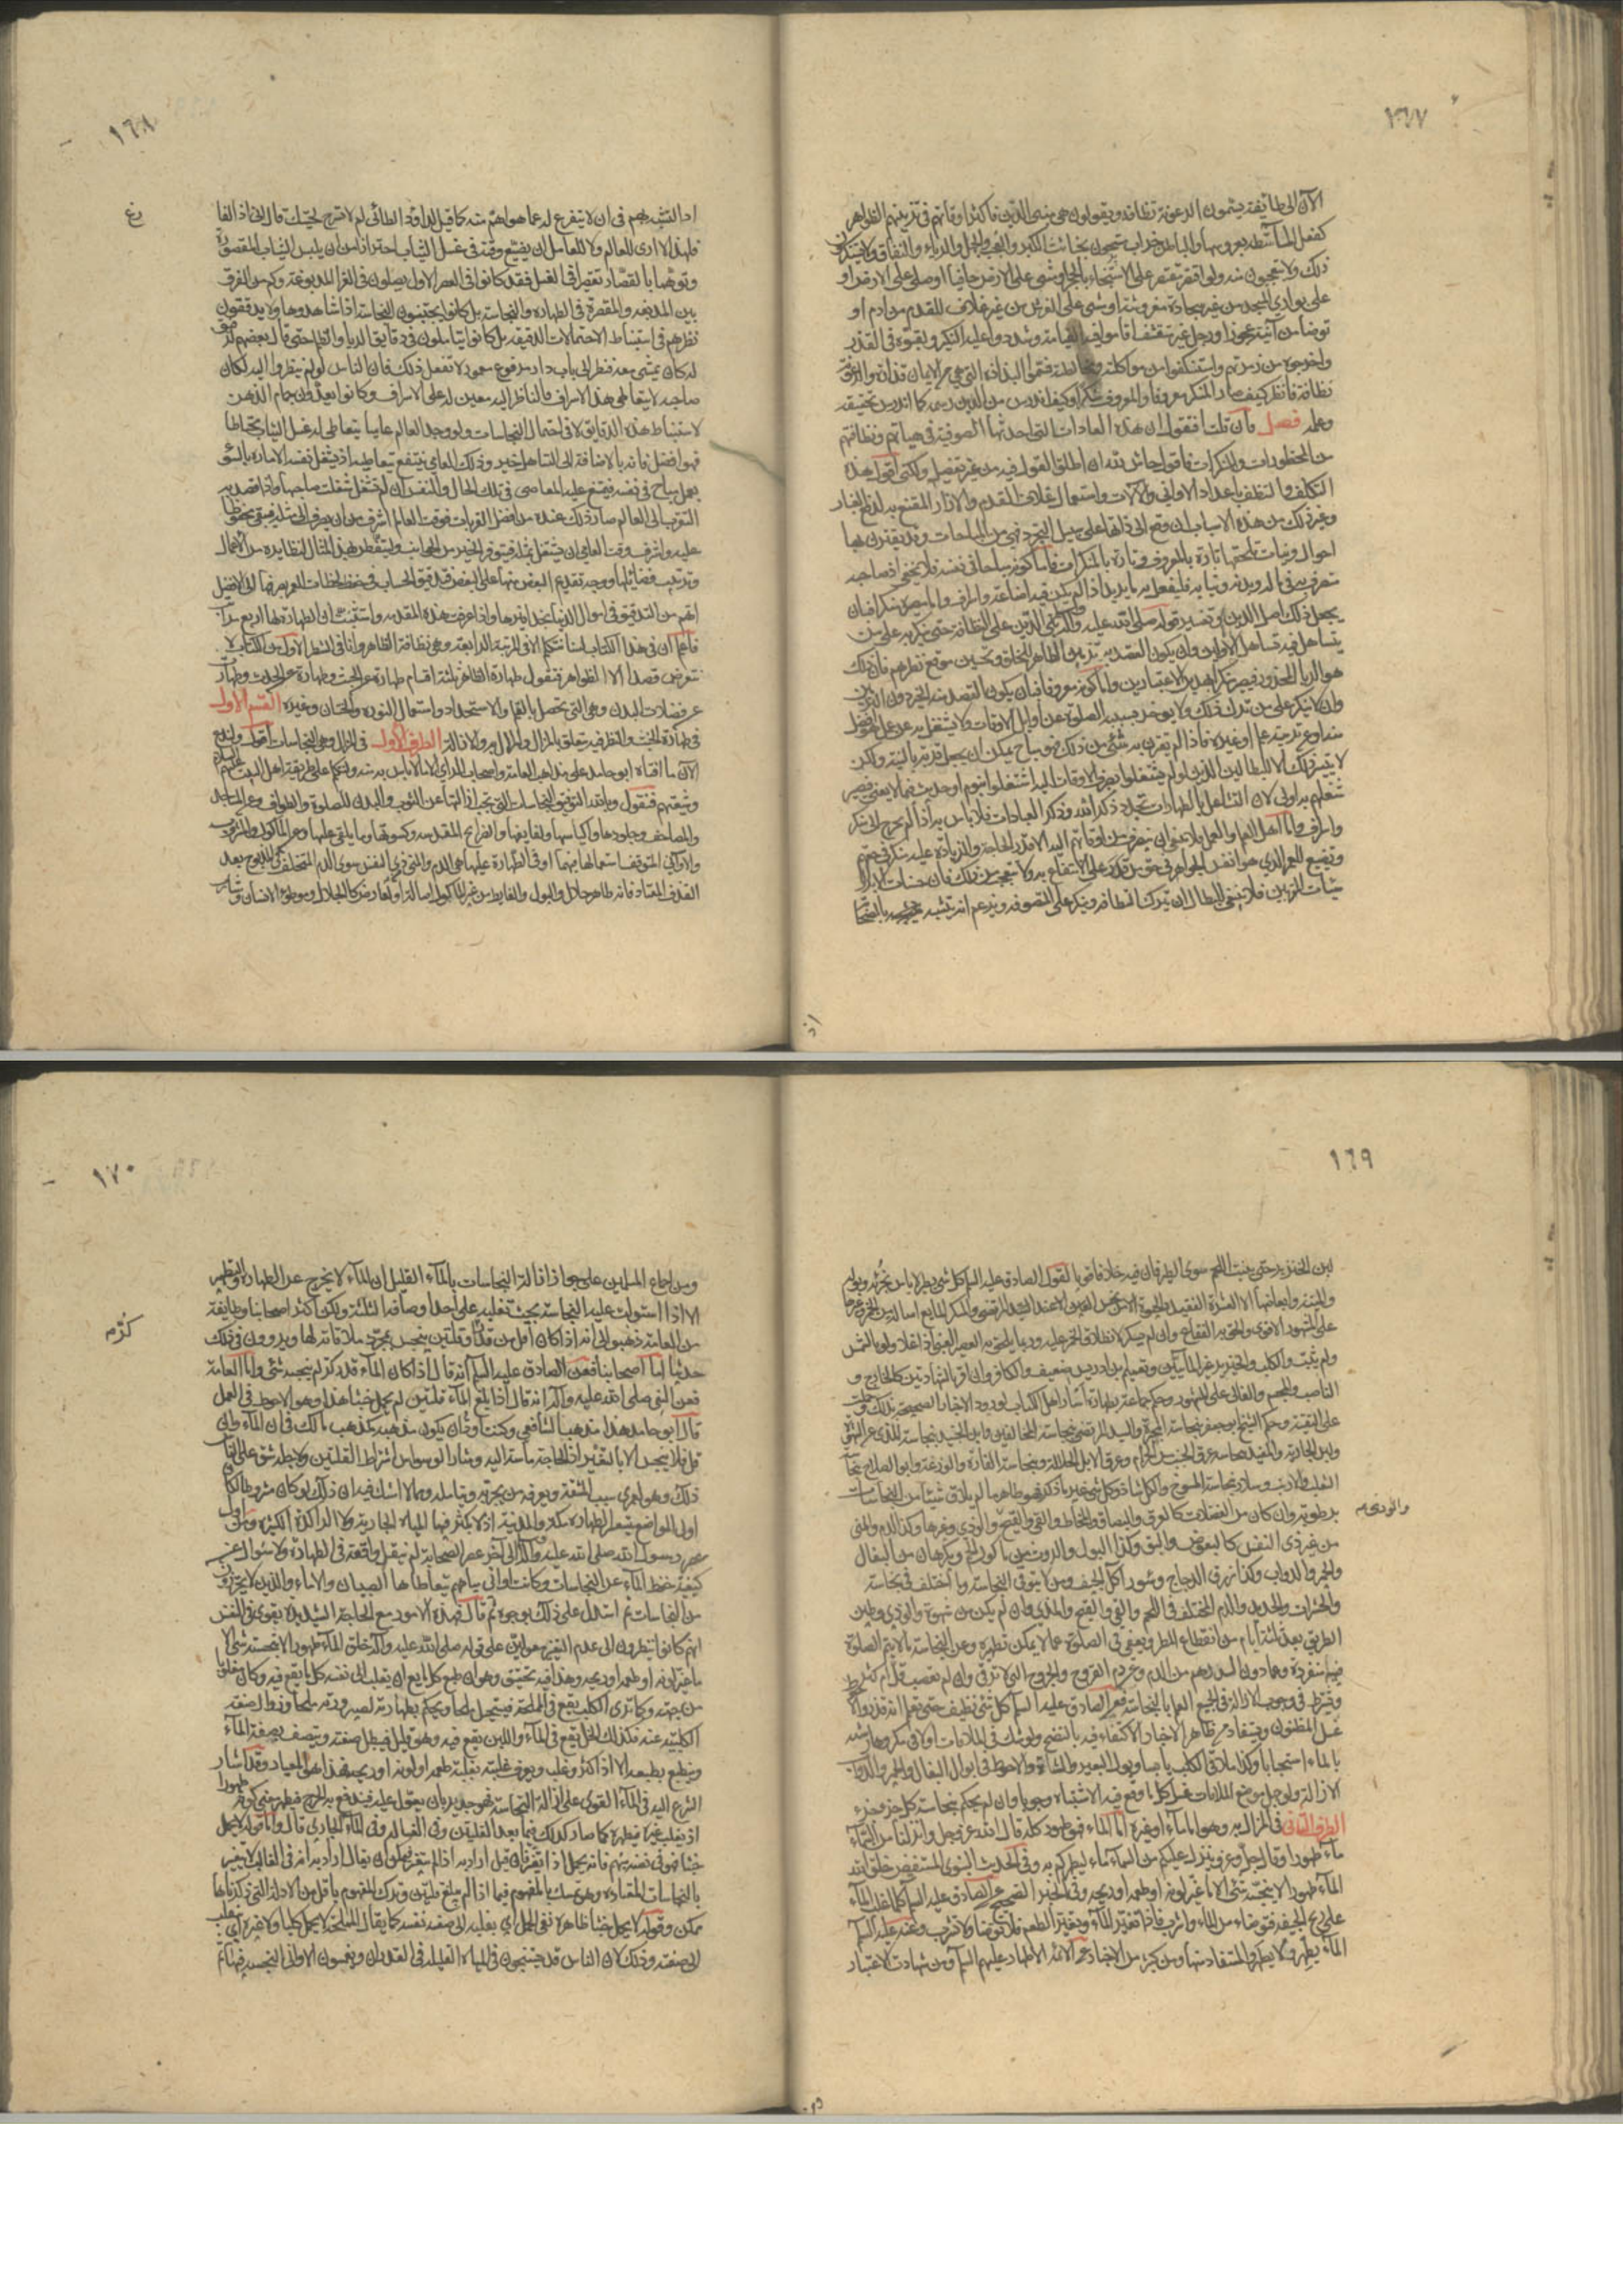 ١٦٧
الآن الى طائفة يسمون الرعونة نظافة ويقولون هي مبنى الدين فاكثر اوقاتهم في تزيينهم الظواهر
كفعل الماشطة بعروسها والباطن خراب مشحون بخبائث الكبر والعجب والجهل والرياء والنفاق ولا يستنكرون
ذلك ولا يتعجبون منه ولو اقتصر مقتصر على الاستنجاء بالحجر او مشى على الارض حافيا او صلى على الارض او
على بواري المسجد من غير سجادة مفروشة او مشى على الفرش من غير غلاف للقدم من ادم او
توضأ من آنية عجوز او رجل غير متقشف اقاموا فيه القيامة وشددوا عليه النكير ولقبوه في القذر
واخرجوه من زمرتهم واستنكفوا من مواكلته ومخالطته فسموا البذاذة التي هي من الايمان قذارة والرعونة
نظافة فانظر كيف صار المنكر معروفا والمعروف منكرا وكيف اندرس من الدين رسمه كما اندرس تحقيقه
وعلمه فصل فان قلت افنقول ان هذه العادات التي احدثها الصوفية في هيأتهم ونظافتهم
من المحظورات والمنكرات فاقول حاش لله ان اطلق القول فيه من غير تفصيل ولكني اقول هذه
التكلف والتنظف باعداد الاواني والآلات واستعمال غلاف القدم والازار المقنع به لدفع الغبار
وغير ذلك من هذه الاسباب ان وقع الى ذاتها على سبيل التجرد فهي من المباحات وقد يقترن بها
احوال ونيات تلحقها تارة بالمعروف وتارة بالمنكرات فاما كونه مباحا في نفسه فلا يخفى اذ صاحبه
متصرف به في ماله وبدنه وثيابه فليفعل به ما يريد اذا لم يكن فيه اضاعة واسراف واما مصيره منكرا فبان
يجعل ذلك اصل الدين وتفسير قوله صلى الله عليه وآله بني الدين على النظافة حتى ينكر به على من
يتساهل فيه تساهل الاولين وان يكون القصد به تزيين الظاهر للخلق وتحسين موقع نظرهم فان ذلك
هو الرياء المحذور فيصير منكرا بهذين الاعتبارين واما كونه معروفا فبان يكون القصد منه الخير دون التزين
وان لا ينكر على من ترك ذلك ولا يؤخر بسببه الصلوة عن اوايل الاوقات ولا يشتغل به عن عمل هو افضل
منه او عن تربية علم او غيره فاذا لم يقترن به شئ من ذلك فهو مباح يمكن ان يجعل قربة بالنية ولكن
لا يتيسر ذلك الا للبطالين الذين لو لم يشتغلوا بصرف الاوقات اليه لاشتغلوا بنوم او حديث فيما لا يعني فيصير
شغلهم به اولى لان التشاغل بالطهارات يجدد ذكر الله وذكر العبادات فلا باس به اذا لم يخرج الى منكر
واسراف واما اهل العلم والعمل فلا ينبغي ان يصرف من اوقاتهم اليه الا قدر الحاجة والزيادة عليه منكر في حقهم
وتضييع العمر الذي هو انفس الجواهر في حق من قدر على الانتفاع به ولا يتعجب من ذلك فان حسنات الابرار
سيئات المقربين فلا ينبغي للبطال ان يترك النظافة وينكر على المتصوفة ويزعم انه تشبه بالصحابة
١٦٨
اذ التشبه بهم في ان لا يتفرغ له عما هو اهم منه كما قيل لداود الطائي لم لا تسرح لحيتك قال اني اذا لفارغ
فلهذا لا ارى للعالم ولا للعامل ان يضيع وقته في غسل الثياب احترازا من ان يلبس الثياب المقصورة
وتوهما بالقصار تقصيرا في الغسل فقد كانوا في العصر الاول يصلون في الفراء المدبوغة وكم من الفرق
بين المدبوغة والمقصورة في الطهارة والنجاسة بل كانوا يجتنبون النجاسة اذا شاهدوها ولا يدققون
نظرهم في استنباط الاحتمالات الدقيقة بل كانوا يتأملون في دقايق الرياء والظلم حتى قال بعضهم لرفيق
له كان يمشي معه فنظر الى باب دار مرفوع معمور لا تفعل ذلك فان الناس لو لم ينظروا اليه لكان
صاحبه لا يتعاطى هذا الاسراف فالناظر اليه معين له على الاسراف وكانوا يعدون جمام الذهن
لاستنباط هذه الدقايق لا في احتمال النجاسات ولو وجد العالم عاميا يتعاطى له غسل الثياب محتاطا
فهو افضل فانه بالاضافة الى التساهل خير وذلك العامي ينتفع بتعاطيه اذ يشغل نفسه الامارة بالسوء
بعمل مباح في نفسه فيمتنع عليه المعاصي في تلك الحال والنفس ان لم تشغل شغلت صاحبها واذا قصد به
التقرب الى العالم صار ذلك عنده من افضل القربات فوقت العالم اشرف من ان يصرف الى مثله فيبقى محفوظا
عليه واشرف وقت العامي ان يشتغل بمثله فيتوفر الخير من الجوانب وليتفطن بهذا المثال لنظايره من الاعمال
وترتيب فضائلها ووجه تقديم البعض منها على البعض فتدقيق الحساب في حفظ لحظات العمر بصرفها الى الافضل
اهم من التدقيق في امور الدنيا بحذافيرها واذا عرفت هذه المقدمة واستبنت ان الطهارة لها اربع مراتب
فاعلم ان في هذا الكتاب لسنا نتكلم الا في المرتبة الرابعة وهي نظافة الظاهر وانا في الشطر الاول من الكتاب لا
نتعرض قصدا الا للظواهر فنقول طهارة الظاهر ثلثة اقسام طهارة عن الخبث وطهارة عن الحدث وطهارة
عن فضلات البدن وهي التي تحصل بالقلم والاستحداد واستعمال النورة والختان وغيره القسم الاول
في طهارة الخبث والنظر فيه يتعلق بالمزال والمزال به والازالة الطرف الاول في المزال وهي النجاسات اقول ولندع
الآن ما افتاه ابو حامد على مذاهب العامة واصحاب الرأي الا ما لا باس به منه ولنتكلم على طريقة اهل البيت عليهم السلام
وشيعتهم فنقول وبالله التوفيق النجاسات التي تجب ازالتها عن الثوب والبدن للصلوة والطواف وعن المساجد
والمصاحف وجلودها واكياسها ولفايفها والضرايح المقدسة وكسوتها وما يلقى عليها وعن المأكول والمشروب
والاواني المتوقف استعمالها فيهما او في الطهارة عليها هي الدم والمني من ذي النفس سوى الدم المتخلف في الذبوح بعد
القذف المعتاد فانه طاهر حلال والبول والغايط من غير المأكول اصالة او لعارض كالجلال وموطؤ الانسان وشارب
١٦٩
لبن الخنزيرة حتى ينبت اللحم سوى الطير فان فيه خلافا
والميتة وابعاضها الا العشرة الفقيدة الحيوة
على المشهور الاقوى والحق به الفقاع وان لم يسكر لاطلاق الخمر عليه وربما يلحق به العصير العنبي اذا غلا ولو بالشمس
ولم يثبت والكلب والخنزير غير المائيين وتعميم ابن ادريس ضعيف والكافر وان اقر بالشهادتين كالخارج و
الناصب والمجسم والغالي على المشهور وحكم جماعة بطهارة أسآر اهل الكتاب لورود الاخبار الصحيحة بذلك وحملت
على التقية وحكم الشيخ ابو جعفر بنجاسة المجبرة والسيد المرتضى بنجاسة المخالفين وابن الجنيد بنجاسة المذي عن الشهوة
ولبن الجارية والمفيد نجاسة عرق الجنب من الحرام وعرق الابل الجلالة وبنجاسة الفارة والوزغة وابو الصلاح نجاسة
الثعلب والارنب وسلار نجاسة المسوخ والكل شاذ وكل شئ غير ما ذكر فهو طاهر ما لم يلاق شيئا من النجاسات
برطوبة وان كان من الفضلات كالعرق والبصاق والمخاط والقئ والقيح والوذي وغيرها وكذا الدم والمني
من غير ذي النفس كالبعوض والبق وكذا البول والروث من مأكول اللحم ويكرهان من البغال
والحمر والدواب وكذا ذرق الدجاج وسؤر آكل الجيف ومن لا يتوقى النجاسة وما اختلف في نجاسته
والحشرات والحديد والدم المتخلف في اللحم والقئ والقيح والمذي وان لم يكن من شهوة والوذي وطين
الطريق بعد ثلثة ايام من انقطاع المطر ويعفى في الصلوة عما لا يمكن تطهيره وعن النجاسة ما لا يتم الصلوة
فيه منفردة وعما دون الدرهم من الدم وعن دم القروح والجروح التي لا ترقى وان لم تعصب قل ام كثر
ويشترط في وجوب الازالة في الجميع العلم بالنجاسة فعن الصادق عليه السلم كل شئ نظيف حتى تعلم انه قذر واما
غسل المظنون ويستفاد من ظاهر الاخبار الاكتفاء فيه بالنضح ولو شك في الملاقات او لاقى مكروها رشه
بالماء استحبابا وكذا ملاقي الكلب يابسا وبول البعير والشاة والاحوط في ابوال البغال والحمير والدواب
الازالة ولو جهل موضع الملاقات غسل كل ما وقع فيه الاشتباه وجوبا وان لم يحكم بنجاسة كل جزء جزء
الطرف الثاني في المزال به وهو اما ماء او غيره اما الماء فهو طهور كله قال الله عز وجل وانزلنا من السماء
ماء طهورا وقال جل وعز وينزل عليكم من السماء ماء ليطهركم به وفي الحديث النبوي المستفيض خلق الله
الماء طهورا لا ينجسه شئ الا ما غير لونه او طعمه او ريحه وفي الخبر الصحيح عن الصادق عليه السلم كلما غلب الماء
على ريح الجيفة فتوضأ من الماء واشرب فاذا تغير الماء وتغير الطعم فلا توضأ ولا تشرب وعنه عليه السلم
الماء يطهر ولا يطهر والمستفاد منها ومن كثير من الاخبار عن الائمة الاطهار عليهم السلم ومن شهادة الاعتبار
١٧٠
ومن اجماع المسلمين على جواز ازالة النجاسات بالماء القليل ان الماء لا يخرج عن الطهارة والتطهير
الا اذا استولت عليه النجاسة بحيث تغلبه على احد اوصافه الثلثة ولكن اكثر اصحابنا وطايفة
من العامة ذهبوا الى انه اذا كان اقل من قلتين ينجس بمجرد ملاقاته لها ويروون في ذلك
حديثا اما اصحابنا فعن الصادق عليه السلم انه قال اذا كان الماء قدر كر لم ينجسه شئ واما العامة
فعن النبي صلى الله عليه وآله انه قال اذا بلغ الماء قلتين لم يحمل خبثا هذا وهو الاحوط في العمل
قال ابو حامد هذا مذهب الشافعي وكنت اود ان يكون مذهبه كمذهب مالك في ان الماء وان
قل فلا ينجس الا بالتغير اذ الحاجة ماسة اليه ومثار الوسواس اشتراط القلتين ولاجله شق على الناس
ذلك وهو لعمري سبب المشقة ويعرفه من يجربه ويتامله ومما لا اشك فيه ان ذلك لو كان مشروطا لكان
اولى المواضع بتعسر الطهارة مكة والمدينة اذ لا يكثر فيها المياه الجارية ولا الراكدة الكثيرة ومن اول
عصر رسول الله صلى الله عليه وآله الى آخر عصر الصحابة لم ينقل واقعة في الطهارة ولا سؤال عن
كيفية حفظ الماء عن النجاسات وكانت اواني مياههم يتعاطاها الصبيان والاماء والذين لا يحترزون
من النجاسات ثم استدل على ذلك بوجوه ثم قال فهذه الامور مع الحاجة الشديدة يقوي في النفس
انهم كانوا ينظرون الى عدم التغير معولين على قوله صلى الله عليه وآله خلق الماء طهورا لا ينجسه شئ الا
ما غير لونه او طعمه او ريحه وهذا فيه تحقيق وهو ان طبع كل مايع ان يقلب الى نفسه كل ما يقع فيه وكان مغلوبا
من جهته وكما ترى الكلب يقع في المملحة فيستحيل ملحا ويحكم بطهارته لصيرورته ملحا وزوال صفة
الكلبية عنه فكذلك الخل يقع في الماء واللبن يقع فيه وهو قليل فيبطل صفته ويتصف بصفة الماء
وينطبع بطبعه الا اذا كثر وغلب ويعرف غلبته بغلبة طعمه او لونه او ريحه فهذا هو المعيار وقد اشار
الشرع اليه في الماء القوي على ازالة النجاسة فهو جدير بان يعول عليه فيندفع به الحرج فيظهر معنى كونه طهورا
اذ يغلب غيره فيطهره كما صار كذلك فيما بعد القلتين وفي الغسالة وفي الماء الجاري قال واما قوله لا يحمل
خبثا فهو في نفسه مبهم فانه يحمل اذا تغير فان قيل اراد به اذا لم يتغير فيمكن ان يقال اراد به انه في الغالب لا يتغير
بالنجاسات المعتادة وهو تمسك بالمفهوم فيما اذا لم يبلغ قلتين وترك المفهوم باقل من الادلة التي ذكرناها
ممكن وقوله لا يحمل خبثا ظاهره نفي الحمل اي يقلبه الى صفة نفسه كما يقال المملحة لا يحمل كلبا ولا غيره اي ينقلب
الى صفته وذلك لان الناس قد يستنجون في المياه القليلة في الغدران ويغمسون الاواني النجسة فيها ثم